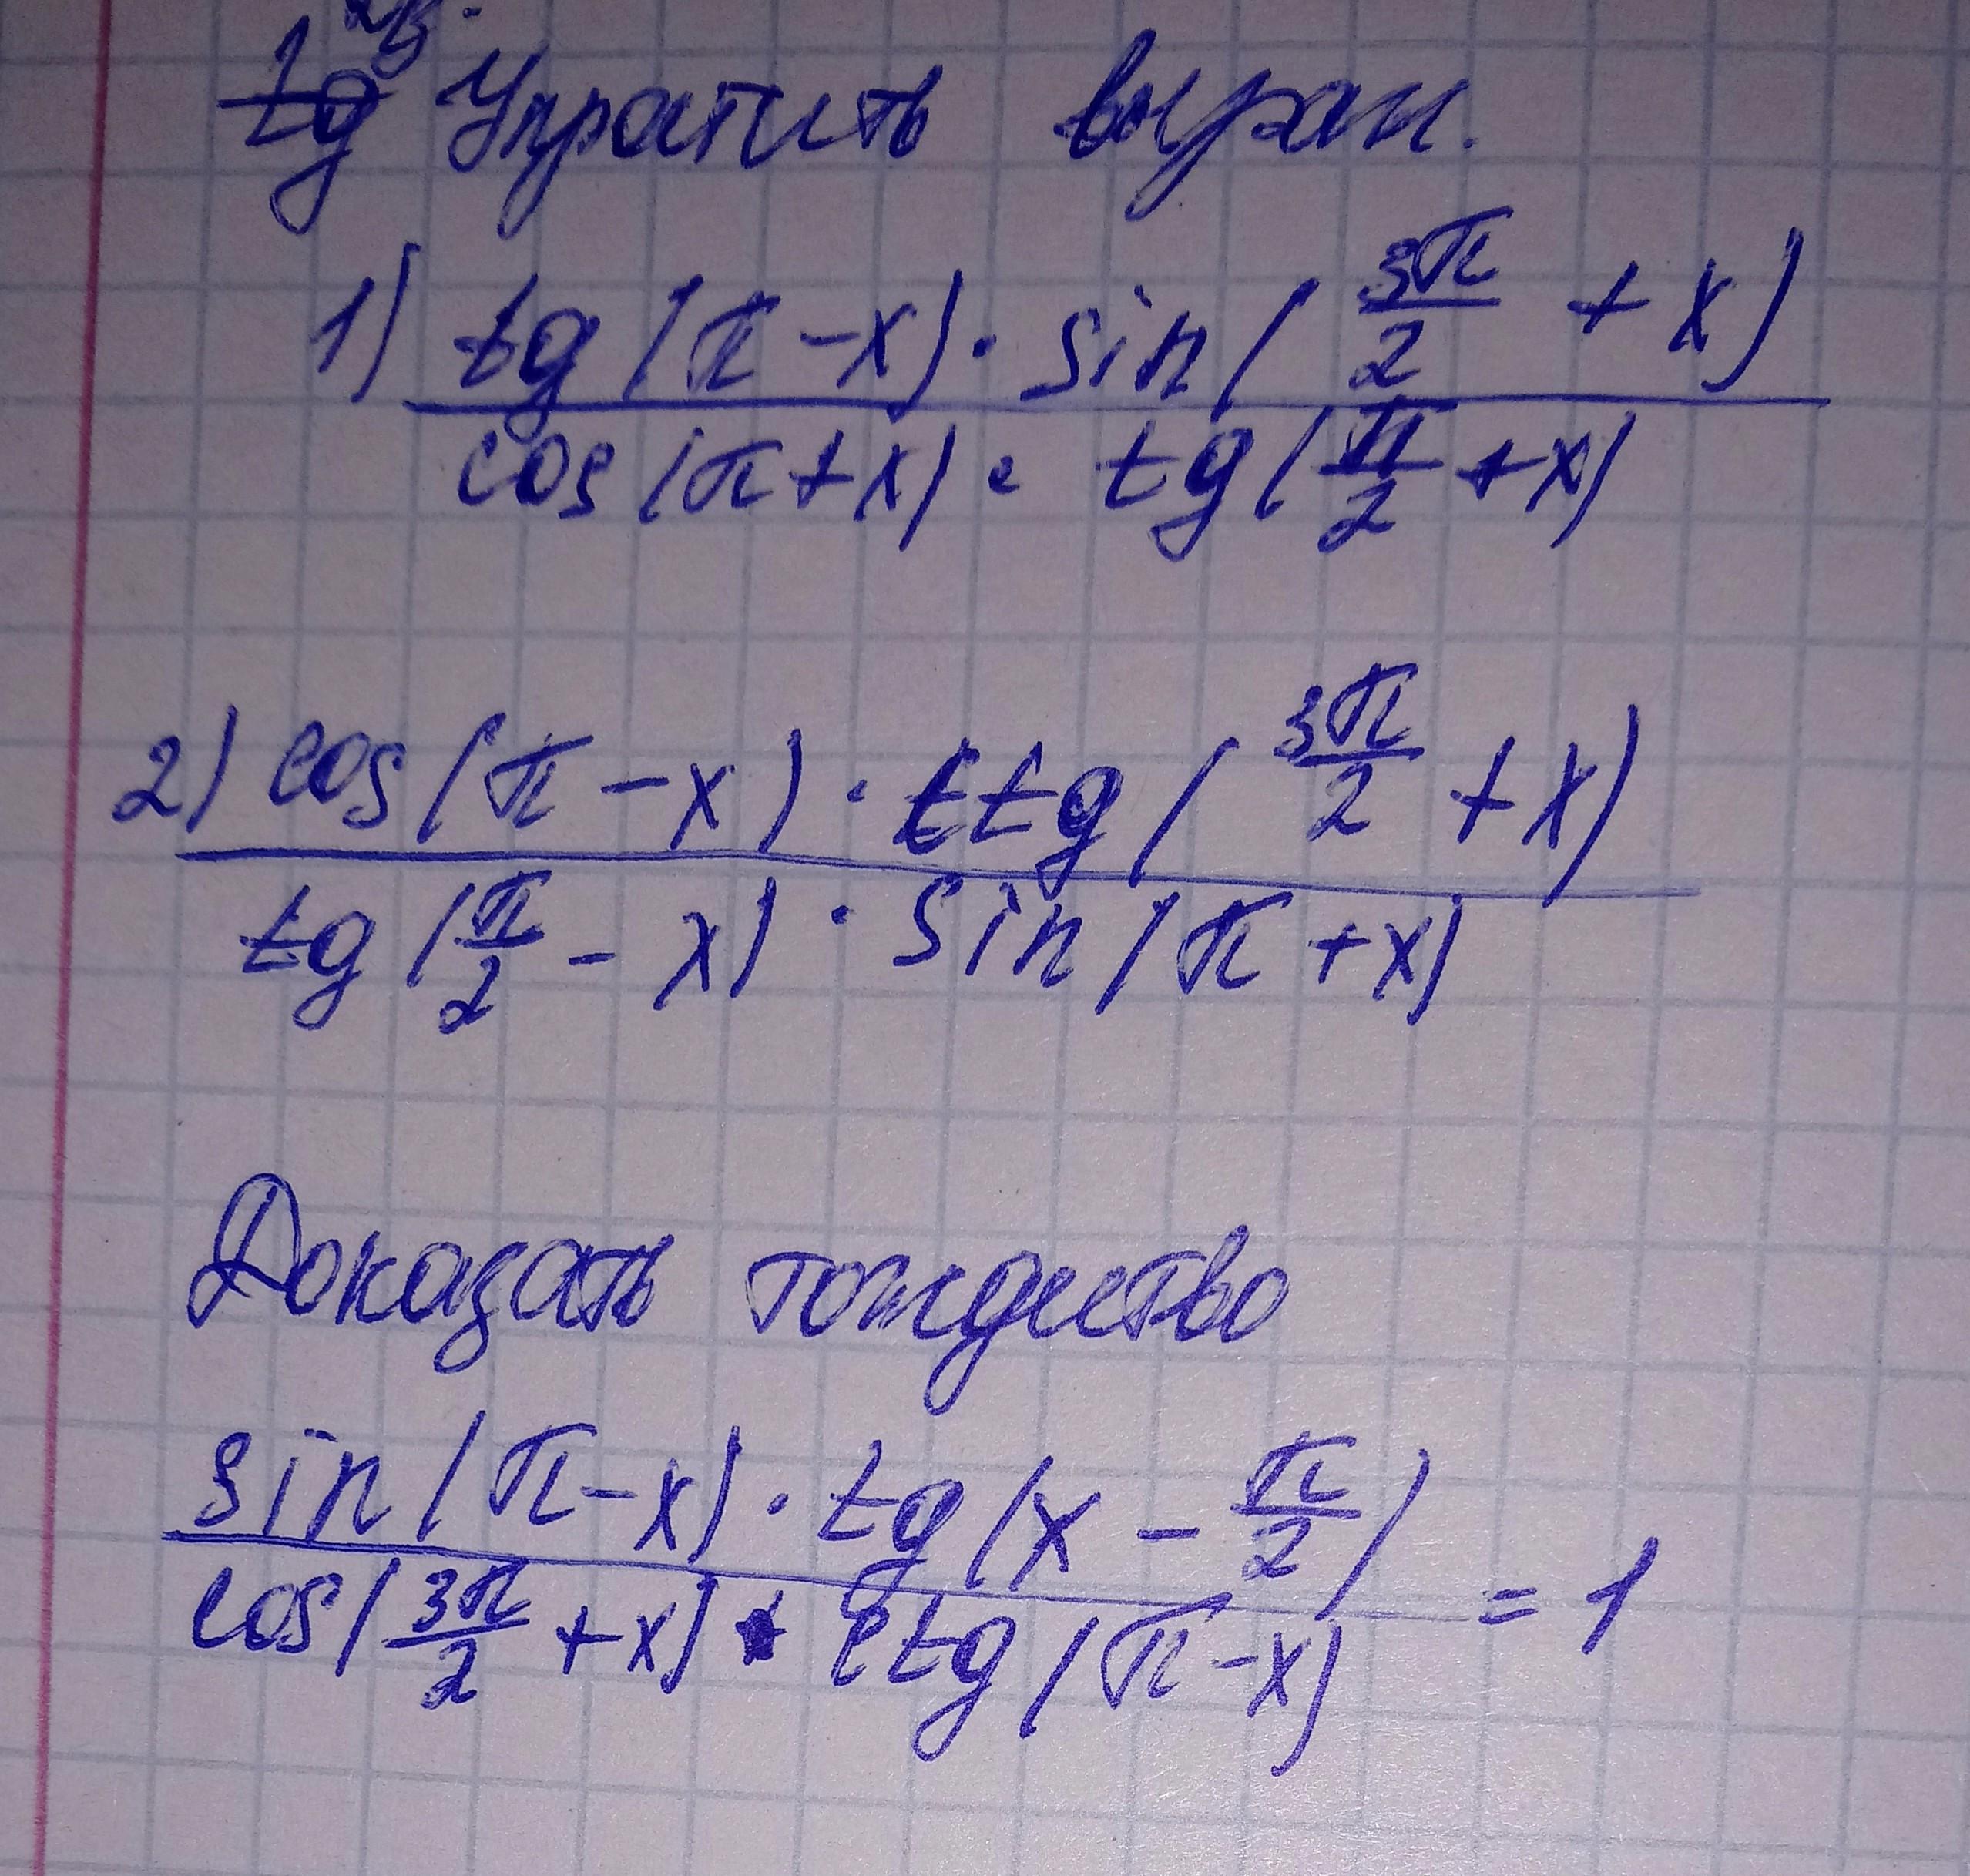 tg Упростить выраж.
1) tg(π-x)·sin(3π/2+x)
cos(π+x)·tg(π/2+x)
2) cos(π-x)·ctg(3π/2+x)
tg(π/2-x)·sin(π+x)
Доказать тождество
sin(π-x)·tg(x-π/2)
cos(3π/2+x)·ctg(π-x) = 1